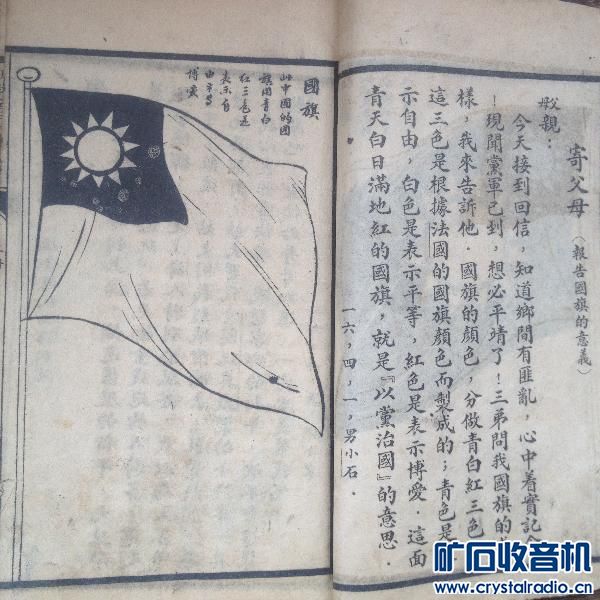 寄父母（報告國旗的意義）
親：
今天接到回信，知道鄉間有匪亂，心中着實記
！現聞黨軍已到，想必平靖了！三弟問我國旗的
樣，我來告訴他．國旗的顏色，分做青白紅三色
這三色是根據法國的國旗顏色而製成的；青色是
示自由，白色是表示平等，紅色是表示博愛．這面
青天白日滿地紅的國旗，就是『以黨治國』的意思．
一六，四，一，男小石．
國旗
此中國的國
旗用青白
紅三色是
表示自
由平等
博愛
矿石收音机
www.crystalradio.cn